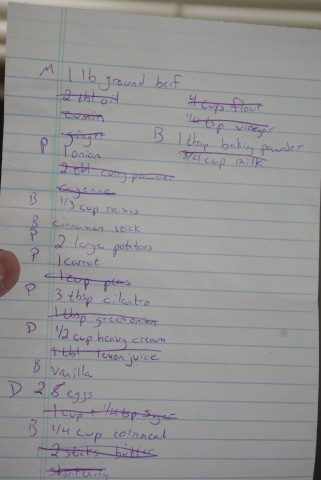 M 1 lb ground beef
2 tbl oil
4 cups flour
cumin
1/4 tsp vinegar
ginger
B 1 tbsp baking powder
P 1 onion
3/4 cup milk
2 tbl curry powder
cayenne
B 1/3 cup raisins
B cinnamon stick
P 2 large potatoes
P 1 carrot
1 cup peas
P 3 tbsp cilantro
1 tbsp green onion
D 1/2 cup heavy cream
1 tbl lemon juice
B vanilla
D 2 8 eggs
1 cup + 1/4 tsp sugar
B 1/4 cup cornmeal
2 sticks butter
shortening